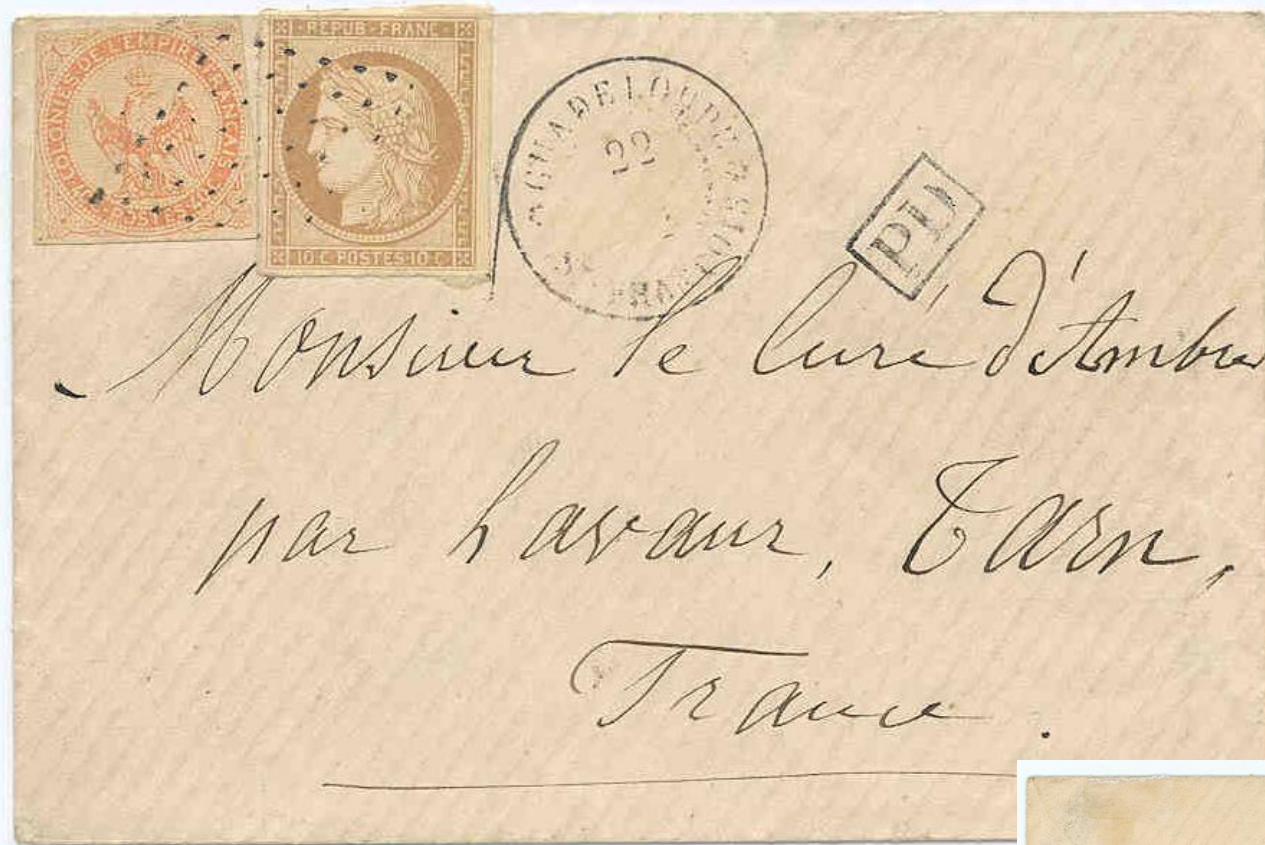 COLONIES DE L'EMPIRE FRANÇAIS
POSTES
REPUB · FRANC
10 C POSTES · 10 C
GUADELOUPE
22
PD
Monsieur le Curé d'Ambres
par Lavaur, Tarn,
France.